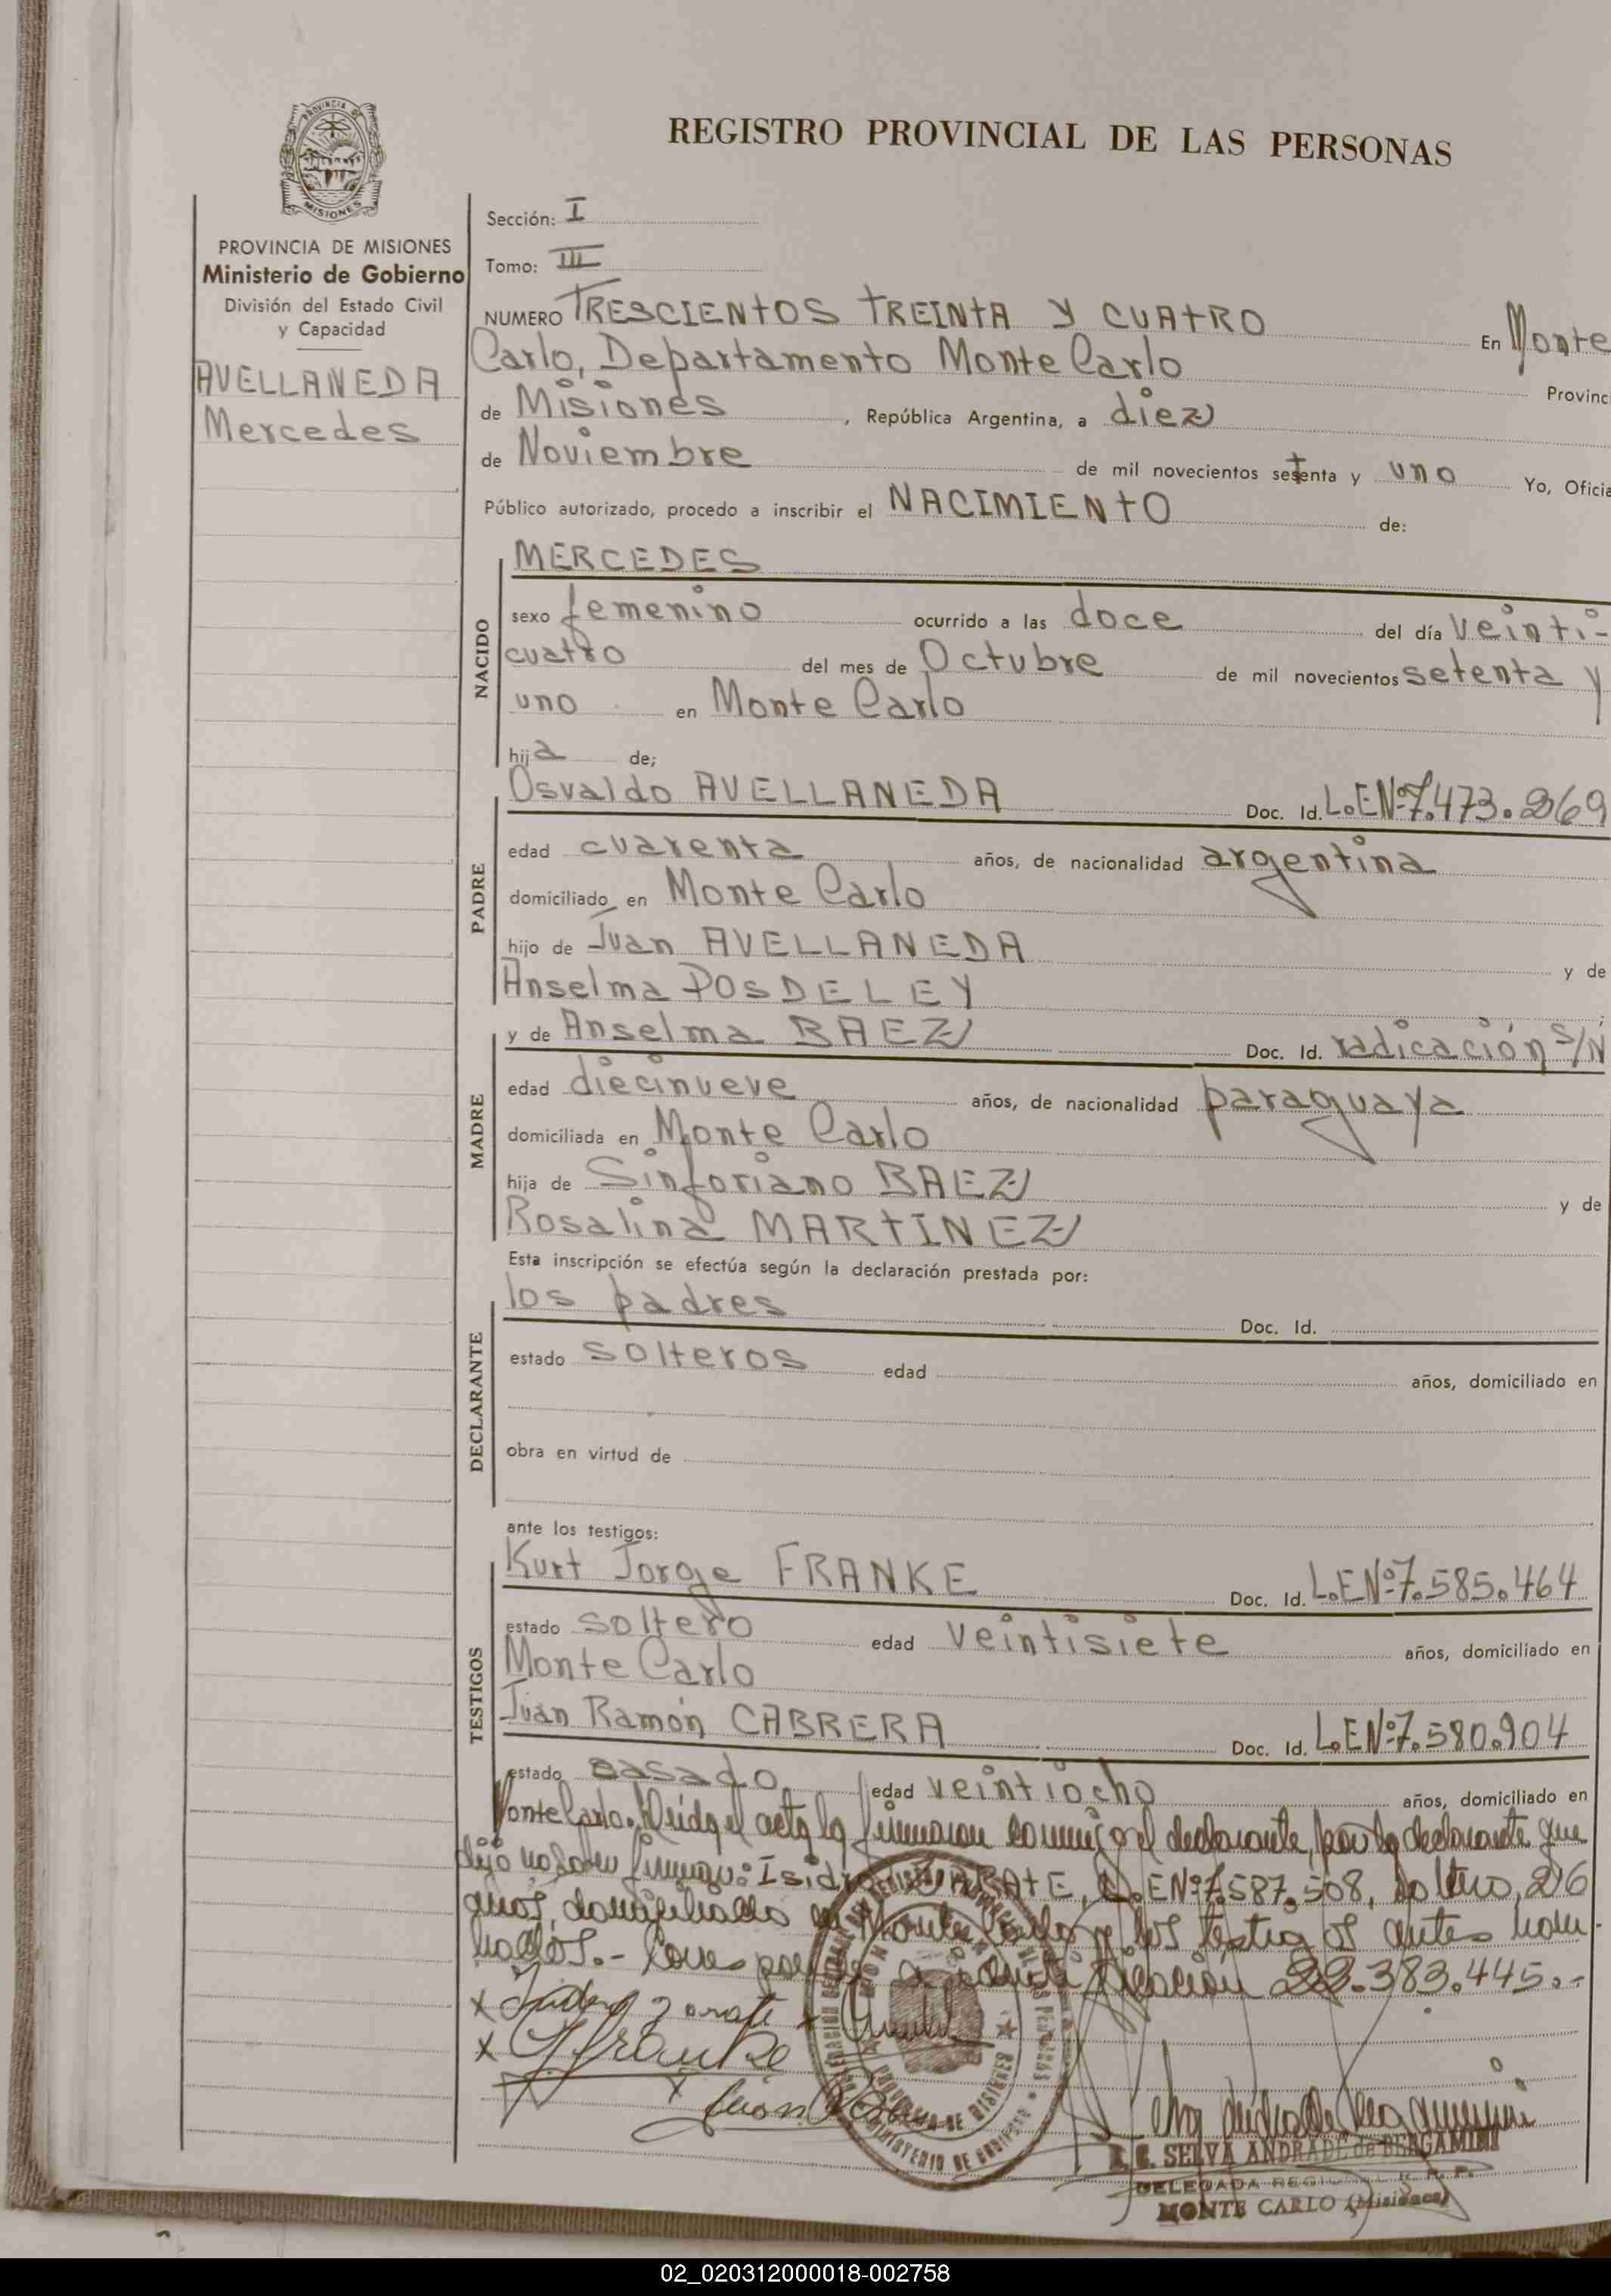 REGISTRO PROVINCIAL DE LAS PERSONAS
PROVINCIA DE
MISIONES
PROVINCIA DE MISIONES
Ministerio de Gobierno
División del Estado Civil
y Capacidad
AVELLANEDA
Mercedes
Sección: I
Tomo: III
NUMERO TRESCIENTOS TREINTA Y CUATRO En Monte
Carlo, Departamento Monte Carlo Provinc
de Misiones, República Argentina, a diez
de Noviembre de mil novecientos setenta y uno Yo, Oficia
Público autorizado, procedo a inscribir el NACIMIENTO de:
NACIDO
MERCEDES
sexo femenino ocurrido a las doce del día veinti-
cuatro del mes de Octubre de mil novecientos setenta y
uno en Monte Carlo
hija de;
PADRE
Osvaldo AVELLANEDA Doc. Id. L.E.Nº7.473.269
edad cuarenta años, de nacionalidad argentina
domiciliado en Monte Carlo
hijo de Juan AVELLANEDA y de
Anselma POSDELEY
MADRE
y de Anselma BAEZ Doc. Id. radicación S/N
edad diecinueve años, de nacionalidad paraguaya
domiciliada en Monte Carlo
hija de Sinforiano BAEZ y de
Rosalina MARTINEZ
Esta inscripción se efectúa según la declaración prestada por:
DECLARANTE
los padres Doc. Id.
estado solteros edad años, domiciliado en
obra en virtud de
ante los testigos:
TESTIGOS
Kurt Jorge FRANKE Doc. Id. L.E.Nº7.585.464
estado soltero edad veintisiete años, domiciliado en
Monte Carlo
Juan Ramón CABRERA Doc. Id. L.E.Nº7.580.904
estado casado edad veintiocho años, domiciliado en
Monte Carlo. Leída el acta la firmaron conmigo el declarante, por la declarante que
dijo no saber firmar: Isidro ZARATE, L.E.Nº7.587.508, soltero, 26
años, domiciliado en Monte Carlo y los testigos antes nom-
brados.- Corresponde 22.383.445.-
x Isidro Zarate x
x Franke
x Juan
SELVA ANDRADE de BERGAMINI
DELEGADA REGIONAL R. P. P.
MONTE CARLO (Misiones)
PROVINCIA DE MISIONES
MINISTERIO DE GOBIERNO
02_020312000018-002758